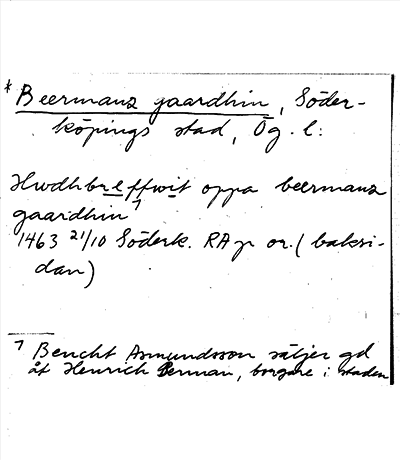 * Beermanz gaardhin, Söder-
köpings stad, Ög. l:
Hwdhbreffwit oppa beermanz
gaardhin 1
1463 21/10 Söderk. RAp or. (baksi-
dan)
1 Bencht Asmundsson säljer gd
åt Henrich Berman, borgare i staden